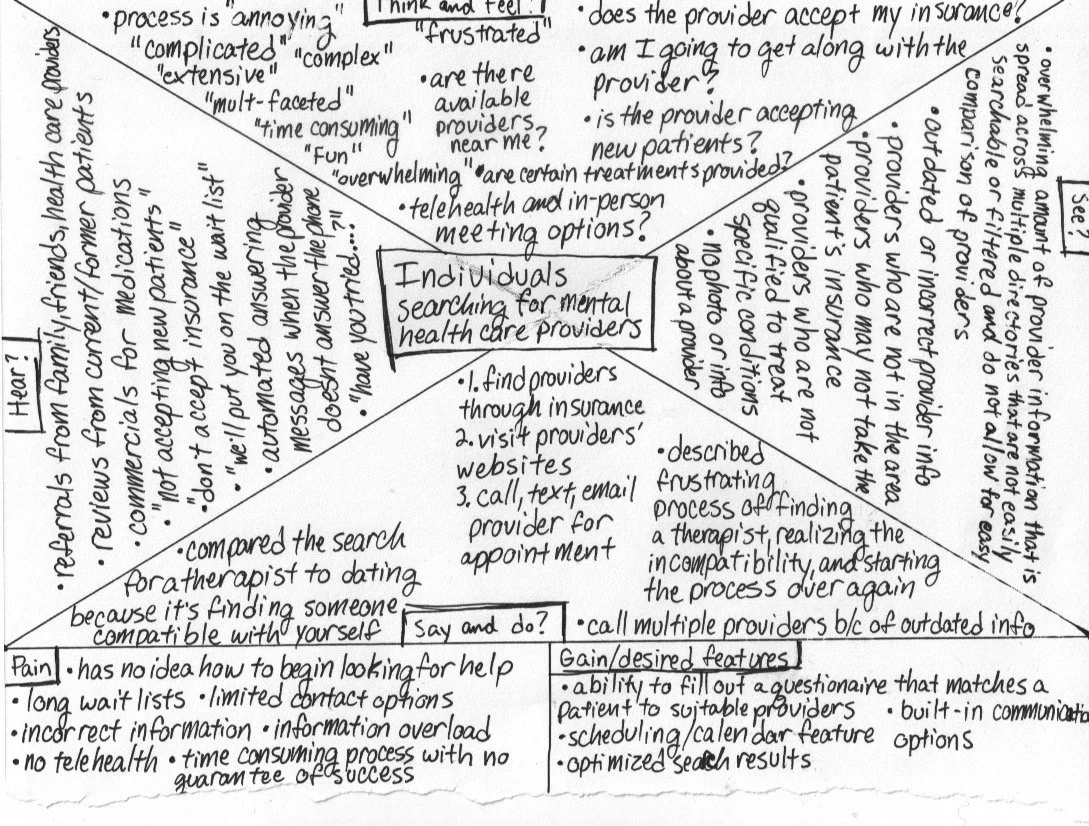 Think and feel?
• process is "annoying"
"complicated" "complex"
"extensive"
"mult-faceted"
"time consuming"
"Fun"
"overwhelming"
"frustrated"
• are there
available
providers
near me?
• does the provider accept my insurance?
• am I going to get along with the
provider?
• is the provider accepting
new patients?
• are certain treatments provided?
• telehealth and in-person
meeting options?
Individuals
searching for mental
health care providers
Hear?
• referrals from family, friends, health care providers
• reviews from current/former patients
• commercials for medications
• "not accepting new patients"
• "don't accept insurance"
• "we'll put you on the wait list"
• automated answering
messages when the provider
doesn't answer the phone
• "have you tried....?"
See?
• overwhelming amount of provider information that is
spread across multiple directories that are not easily
searchable or filtered and do not allow for easy
comparison of providers
• outdated or incorrect provider info
• providers who are not in the area
• providers who may not take the
patient's insurance
• providers who are not
qualified to treat
specific conditions
• no photo or info
about a provider
Say and do?
• 1. find providers
through insurance
2. visit providers'
websites
3. call, text, email
provider for
appointment
• compared the search
for a therapist to dating
because it's finding someone
compatible with yourself
• described
frustrating
process of finding
a therapist, realizing the
incompatibility, and starting
the process over again
• call multiple providers b/c of outdated info
Pain
• has no idea how to begin looking for help
• long wait lists • limited contact options
• incorrect information • information overload
• no telehealth • time consuming process with no
guarantee of success
Gain/desired features
• ability to fill out a questionaire that matches a
patient to suitable providers
• built-in communicatio
options
• scheduling/calendar feature
• optimized search results